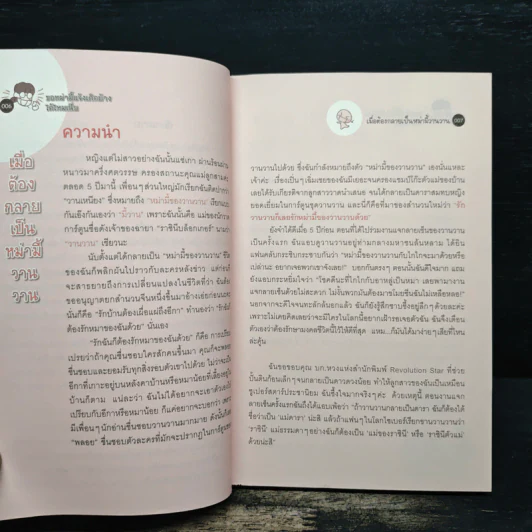 006
ขอหม่ามี้จังเต๊กอ้าง
ความนำ
เมื่อ
ต้อง
กลาย
เป็น
หม่ามี้
วาน
วาน
หญิงแต่ไม่สาวอย่างฉันนั้นแซ่เกา ผ่านร้อนผ่าน
หนาวมาครึ่งศตวรรษ ครองสถานะคุณแม่ลูกสาม
ตลอด 5 ปีมานี้ เพื่อนๆ ส่วนใหญ่มักเรียกฉันติดปากว่า
"วานเหนียง" ซึ่งหมายถึง "หม่ามี้ของวานวาน" เรียกแบบ
กันเองก็บอกว่า "มี้วาน" เพราะฉันนั้นคือ แม่ของนักวาด
การ์ตูนชื่อดังเจ้าของฉายา "ราชินีบล็อกเกอร์" นามว่า
"วานวาน" เชียวนะ
นับตั้งแต่ได้กลายเป็น "หม่ามี้ของวานวาน" ชีวิต
ของฉันก็พลิกผันไปราวกับละครหลังข่าว แต่ก่อน
จะสาธยายถึงการเปลี่ยนแปลงในชีวิตที่ว่า ฉัน
ขออนุญาตยกสำนวนจีนหนึ่งขึ้นมาอ้างเอ่ยก่อน
นั่นก็คือ "รักบ้านต้องเผื่อแผ่ถึงอีกา" ทำนองว่า "รักฉันก็
ต้องรักหมาของฉันด้วย" นั่นเอง
"รักฉันก็ต้องรักหมาของฉันด้วย" ก็คือ การเปรียบ
เปรยว่าถ้าคุณชื่นชอบใครสักคนขึ้นมา คุณก็จะพลอย
ชื่นชอบและยอมรับทุกสิ่งรอบตัวเขาไปด้วย ไม่ว่าจะเป็น
อีกาที่เกาะอยู่บนหลังคาบ้านหรือหมาน้อยที่เลี้ยงอยู่ใน
บ้านก็ตาม
เปรียบกับอีกาหรือหมาน้อย ก็แค่อยากจะบอกว่า
มีเพื่อนๆ นักอ่านชื่นชอบวานวานมากมาย ดังนั้น
"พลอย" ชื่นชอบตัวละครที่มักจะปรากฏในการ์ตูน
เมื่อต้องกลายเป็นหม่ามี้วานวาน
007
วานวานไปด้วย ซึ่งฉันกำลังหมายถึงตัว "หม่ามี้ของวานวาน" เองนั่นแหละ
เลยได้รับเกียรติจากลูกสาววาดนำเสนอ จนได้กลายเป็นดาราสมทบหญิง
ยอดเยี่ยมในการ์ตูนชุดวานวาน และนี่ก็คือที่มาของสำนวนใหม่ว่า "รัก
วานวานก็เลยรักหม่ามี้ของวานวานด้วย"
ยังจำได้ดีเมื่อ 5 ปีก่อน ตอนที่ได้ไปร่วมงานแจกลายเซ็นของวานวาน
เป็นครั้งแรก ฉันแอบดูวานวานอยู่ท่ามกลางมหาชนล้นหลาม ได้ยิน
แฟนคลับกระซิบกระซาบกันว่า "หม่ามี้ของวานวานกับโกโกจะมาด้วยหรือ
เปล่านะ อยากเจอพวกเขาจังเลย!" บอกกันตรงๆ ตอนนั้นฉันดีใจมาก แถม
ยังแอบกระหยิ่มใจว่า "โชคดีนะที่โกโกกับอาหู่เป็นหมา เลยพามางาน
แจกลายเซ็นด้วยไม่สะดวก ไม่งั้นพวกมันต้องมาขโมยซีนฉันไม่เหลือหลอ!"
นอกจากจะดีใจจนทะลักล้นอกแล้ว ฉันยังรู้สึกซาบซึ้งอยู่ลึกๆ อีกด้วย
ฉันขอขอบคุณ บก.หวงแห่งสำนักพิมพ์ Revolution Star ที่ช่วย
ปั้นดินก้อนเล็กๆ จนกลายเป็นดาวดวงน้อย ทำให้ลูกสาวของฉันเป็นเหมือน
ซูเปอร์สตาร์ประชานิยม ฉันซึ้งใจมากจริงๆ ค่ะ ด้วยเหตุนี้ ตอนงานแจก
ลายเซ็นครั้งแรกฉันถึงได้แอบเพ้อว่า "ถ้าวานวานกลายเป็นดารา ฉันก็ต้องได้
ชื่อว่าเป็น 'แม่ดารา' น่ะสิ แล้วถ้าแฟนๆ ในโลกไซเบอร์เรียกขานวานวานว่า
'ราชินี' แม่ธรรมดาๆ อย่างฉันก็ต้องเป็น 'แม่ของราชินี' หรือ 'ราชินีตัวแม่'
ด้วยน่ะสิ"